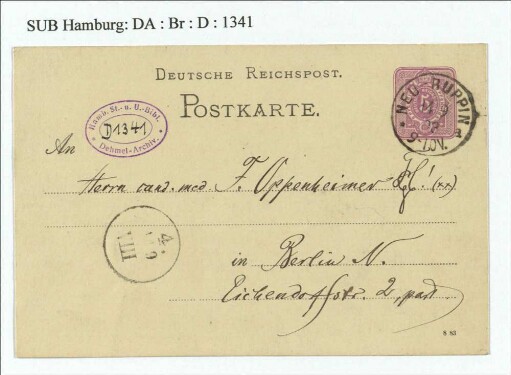 SUB Hamburg: DA : Br : D : 1341
DEUTSCHE REICHSPOST.
POSTKARTE.
NEU-RUPPIN
9-10V.
Hamb. St.- u. U.-Bibl.
D1341
Dehmel-Archiv.
An
Herrn cand. med. F. Oppenheimer (xx)
in Berlin N.
Eichendorffstr. 2, part.
8 83